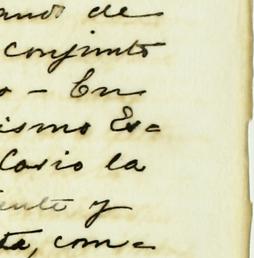 ando de
conjunto
o - En
ismo Es=
Cario la
ente y
ta, com=